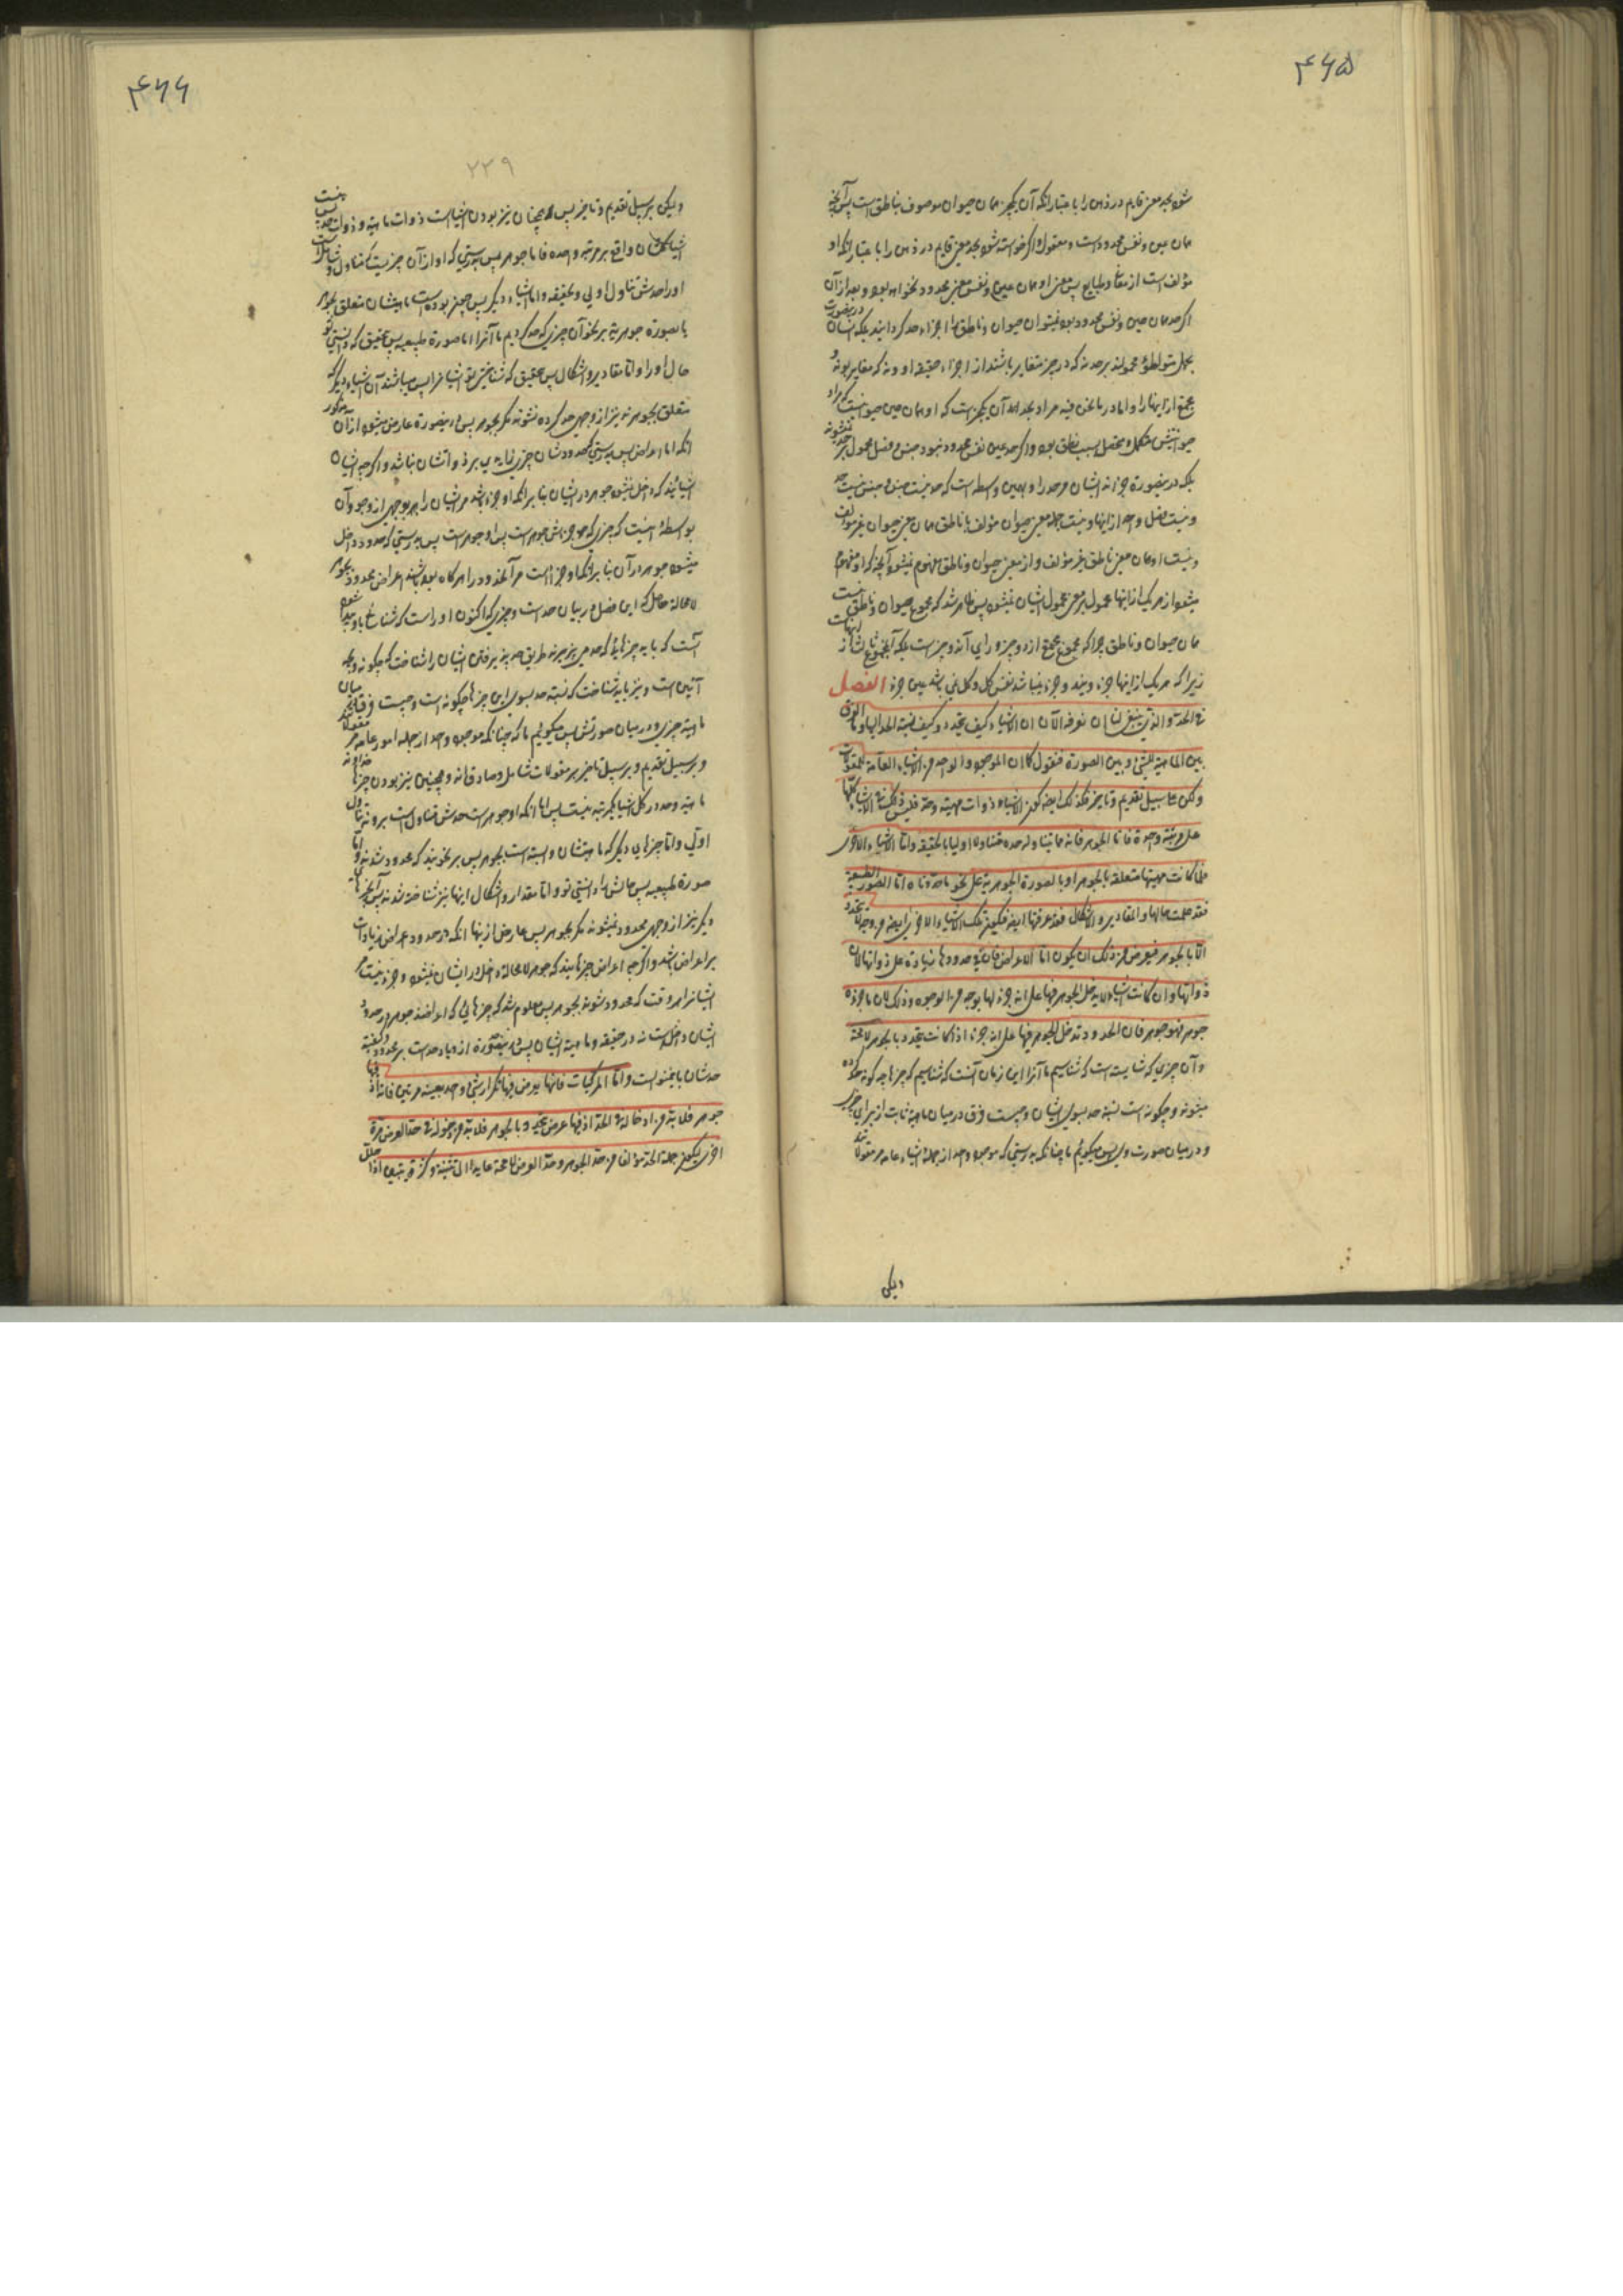 ۴۶۵
شود بحد معنی قایم در ذهن را با عتبار انکه آن یکچیز همان حیوان موصوف بناطق است پس آنچه
همان عین و نفس محدود است و معقول و اگر خواسته شود بحد معنی قایم در ذهن را با عتبار انکه او
مؤلف است از معانی پس معنی او همان عین و نفس معنی محدود نخواهد بود و بعد از آن
اگر حد همان عین و نفس محدود بود نمیتوان حیوان و ناطق را اجزاء حد گردانید بلکه انسان
در اینصورت
محمولند بر حد نه که در چیز متغایر باشند از اجزاء حقیقه او و نه که مغایر بوند
مجتمع از اینها را و اما در ما نحن فیه مراد بحد آن یکچیز است که او همان عین حیوانیست که مراد
حیوانیتش مستکمل و متحصل بسبب نطق بود و اگر حد عین نفس محدود نبود جنس و فصل محمول بر حد
نشوند
بلکه درینصورة جزاند ایشان مر حد را و بهمین واسطه است که حد نیست جنس و جنس نیست حد
و نیست فصل واحد از اینها و نیست جمله معنی حیوان مؤلف با ناطق همان معنی حیوان غیر مؤلف
و نیست او همان معنی ناطق غیر مؤلف و از معنی حیوان و ناطق مفهوم نمیشود آنچه که او مفهوم
میشود از هر یک از اینها محمول بر معنی محمول ایشان نمیشود پس ظاهر شد که مجموع حیوان و ناطق نیست
همان حیوان و ناطق چرا که مجموع مجتمع از دو چیز ورای آن دو چیز است بلکه آنمجموع ثالث است از
زیرا که هر یک از اینها جزء ویند و جزء نمیباشد نفس کل و کل نمی باشد عین جزء الفصل
فی الحد و الذی ینبغی لنا ان نعرفه الآن ان الاشیاء کیف تتحدد و کیف نسبة الحد الیها و ما الفرق
بین الماهیة للشئ و بین الصورة فنقول کما ان الموجود و الواحد من الاشیاء العامة للمقولات
و لکن علی سبیل تقدیم و تاخیر فکذلک ایضا کون الاشیاء ذوات مهیة و حد فلیس ذلک فی الاشیاء کلها
علی مرتبة واحدة فاما الجوهر فانه مما یتناوله حده تناولا اولیا بالحقیقة و اما الاشیاء الاخری
فلما کانت مهیتها متعلقة بالجوهر او بالصورة الجوهریة علی نحو ما حددناه اما الصورة الطبیعیة
فقد علمت حالها و المقادیر و الاشکال فقد عرفتها ایضا فیکون تلک الاشیاء الاخری ایضا من وجه لا تتحدد
الا بالجوهر فیعرض من ذلک ان یکون اما الاعراض فان فی حدودها زیادة علی ذواتها لان
ذواتها و ان کانت اشیاء لا یدخل الجوهر فیها علی انه جزء لها بوجه من الوجوه و ذلک لان ما جزءه
جوهر فهو جوهر فان الحدود تدخل الجوهر فیها علی انه جزء اذا کانت تتحدد بالجوهر لا محة
و آن چیزی که شایسته است که شناسیم ما آنرا این زمان آنست که شناسیم که چیزها چه گونه حد کرده
میشوند و چگونه است نسبة حد بسوی ایشان و چیست فرق در میان ماهیة ثابت از برای چیزی
و در میان صورت وی پس میگوئیم ما چنانکه بدرستی که موجود و واحد از جمله اشیاء عامه مر مقولاتند
ولیکن
۴۶۶
۲۲۹
ولیکن بر سبیل تقدیم و تاخیر پس همچنان نیز بودن اشیا است ذوات ماهیة و ذوات حد پس نیست
اشیا کلشان واقع بر مرتبه واحده فاما جوهر پس بدرستی که او از آن چیزیست که تناول و شاملست
او را حدش تناول اولی و بحقیقه و اما اشیاء دیگر پس چون بوده است ماهیتشان متعلق بجوهر
یا بصورة جوهریه بر نحو آن چیزی که حد کردیم ما آنرا اما صورة طبیعیه پس بتحقیق که دانستی تو
حال او را و اما مقادیر و اشکال پس بتحقیق که شناختی تو ایشانرا پس میباشند آن اشیاء دیگر که
متعلق بجوهرند نیز از وجهی حد کرده نشوند مگر بجوهر پس درینصورة عارض میشود از آن مذکور
انکه اما اعراض پس بدرستی که در حدودشان چیزی زایدیست بر ذواتشان باشد و اگر چه ایشان
اشیائیند که داخل نشود جوهر در ایشان بنا بر انکه او جزء باشد مر ایشان را بهر بوجهی از وجوه آن
بواسطه اینست که چیزی که جزءاش جوهر است پس او جوهر است پس بدرستی که حدود داخل
میشود جوهر در آن بنا بر انکه او جزء است مر آنحدود را هر گاه بوده باشند اعراض محدود بجوهر
لا محاله حاصل که این فصل در بیان حد است و چیزی که اکنون او راست که شناخته شود
آنست که باید چیزهائی را که حد می پذیرند طریق حد پذیرفتن ایشان را شناخت که چگونه و بچه
آئین است و نیز باید شناخت که نسبة حد بسوی این چیزها چگونه است و چیست فرق میان
ماهیة چیزی و در میان صورتش پس میگوئیم ما که چنانکه موجود و واحد از جمله امور عامه مر مقولاتند
و بر سبیل تقدیم و بر سبیل تاخیر بر مقولات شامل و صادق اند و همچنین نیز بودن چیزها خداوند
ماهیة و حد در کل اشیا بیکمرتبه نیست پس اما انکه او جوهر است حدش متناول است بر وی تناول
اولی و اما چیزهای دیگر که ماهیتشان وابسته است بجوهر پس بر نحویند که محدود شدند و اما
صورة طبیعیه پس حالش را دانستی تو و اما مقدار و اشکال اینها نیز شناخته شدند پس آنچیزهای
دیگر نیز از وجهی محدود نمیشوند مگر بجوهر پس عارض از اینها انکه در حدود اعراض زیادات
بر اعراض باشد و اگر چه اعراض چیزهایند که جوهر لا محاله داخل در ایشان نمیشود و جزء نیست مر
ایشانرا هر وقت که محدود شوند بجوهر پس معلوم شد که چیزهائی که اعراضند جوهر در حدود
ایشان داخل است نه در حقیقه و ماهیة ایشان پس درینصورة ازدیاد حد است بر محدود و کیفیة
حدشان باینمنوالست و اما المرکبات فانها یعرض فیها تکرار شئ واحد بعینه مرتین فانه اذ فیها
جوهر فلا بد من ادخاله فی الحد اذ فیها عرض یتحدد بالجوهر فلا بد من دخوله فی حد العرض مرة
اخری لیکون جملة الحد مؤلفا من حد الجوهر و حد العرض لا محة عایدا الی اثنینیة و کثرة یتبین اذا حلل